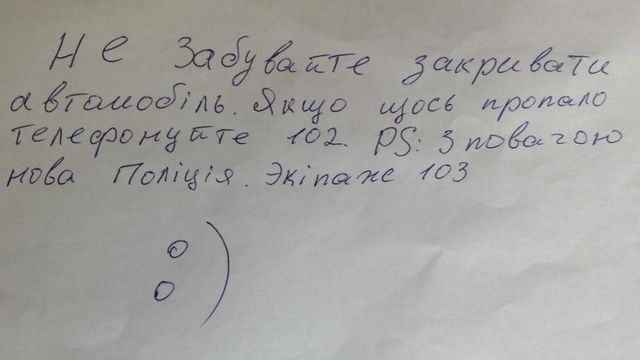 Не забувайте закривати
автомобіль. Якщо щось пропало
телефонуйте 102. PS: З повагою
нова Поліція. Экіпаж 103